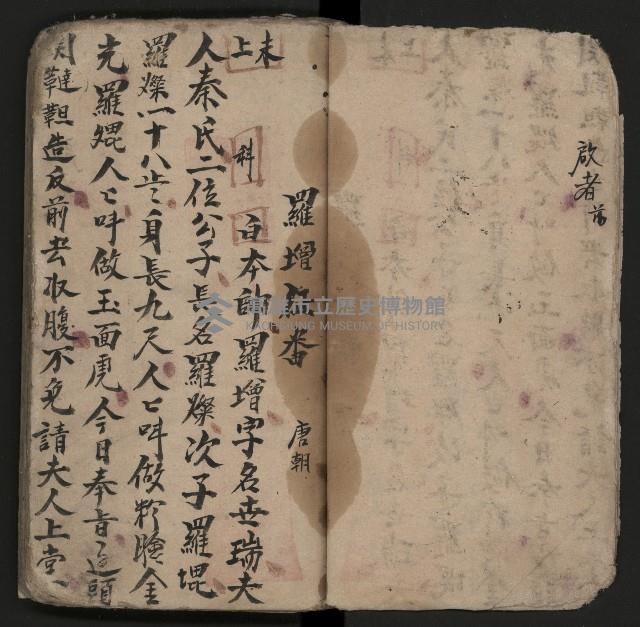 啟者
羅增 番 唐朝
末上 科 白 本 羅增字名世瑞夫
人秦氏二位公子長名羅燦次子羅焜
羅燦一十八 身長九尺人々呌做粉臉金
光羅焜人々呌做玉面虎今日奉旨 頭
因韃靼造反前去收腹不免請夫人上堂
高雄市立歷史博物館
KAOHSIUNG MUSEUM OF HISTORY